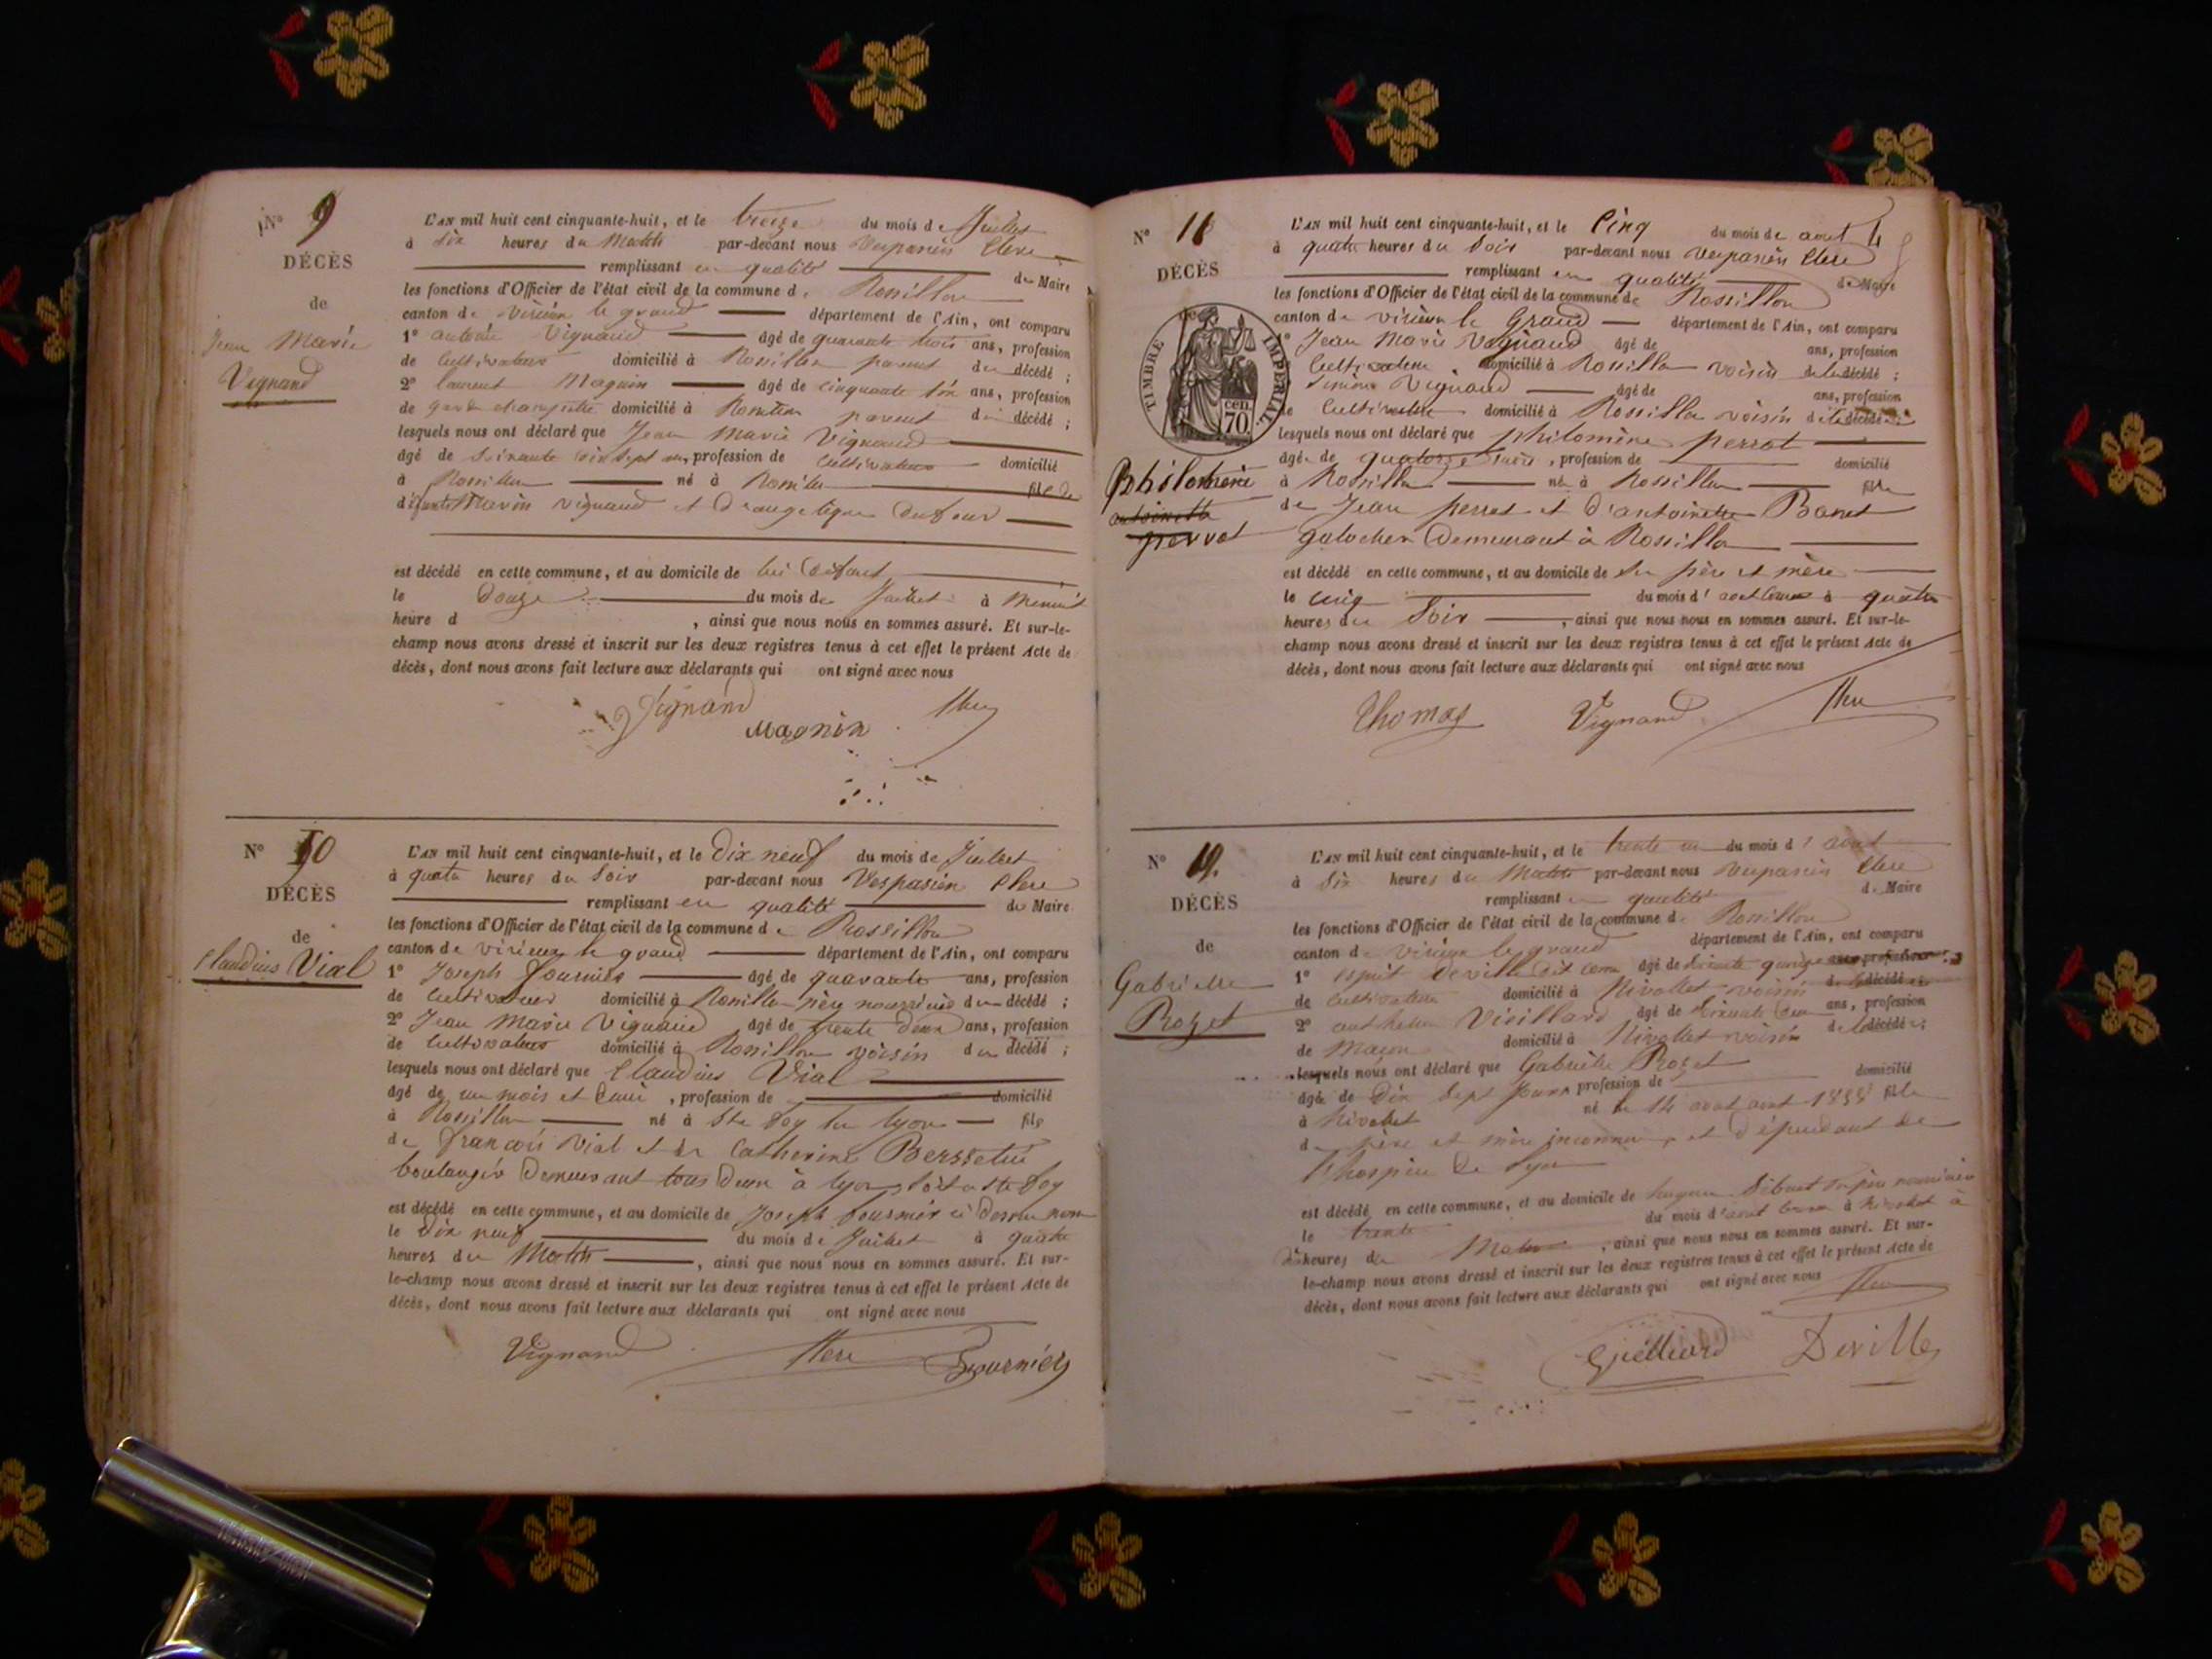 N° 9
DÉCÈS
de
Jean Marie
Vignand
L'AN mil huit cent cinquante-huit, et le treize du mois de Juillet
à Six heures du Matin par-devant nous Vespasien Clerc
remplissant en qualité de Maire
les fonctions d'Officier de l'état civil de la commune de Rossillon
canton de virieu le grand département de l'Ain, ont comparu
1° antoine Vignand âgé de quarante trois ans, profession
de Cultivateur domicilié à Rossillon parent du décédé ;
2° laurent Magnin âgé de cinquante six ans, profession
de garde champetre domicilié à Rossillon parent du décédé ;
lesquels nous ont déclaré que Jean Marie Vignand
âgé de Soixante dix Sept ans, profession de Cultivateur domicilié
à Rossillon né à Rossillon fils de
défunts Marin vignand et d'angelique Dufour
est décédé en cette commune, et au domicile de lui Défunt
le Douze du mois de Juillet à Minuit
heure d , ainsi que nous nous en sommes assuré. Et sur-le-
champ nous avons dressé et inscrit sur les deux registres tenus à cet effet le présent Acte de
décès, dont nous avons fait lecture aux déclarants qui ont signé avec nous
Vignand
Magnin
Clerc
N° 10
DÉCÈS
de
Claudius Vial
L'AN mil huit cent cinquante-huit, et le Dix neuf du mois de Juillet
à quatre heures du Soir par-devant nous Vespasien Clerc
remplissant en qualité de Maire
les fonctions d'Officier de l'état civil de la commune de Rossillon
canton de virieu le grand département de l'Ain, ont comparu
1° Joseph fournier âgé de quarante ans, profession
de Cultivateur domicilié à Rossillon père nourricier du décédé ;
2° Jean Marie Vignand âgé de trente Deux ans, profession
de Cultivateur domicilié à Rossillon voisin du décédé ;
lesquels nous ont déclaré que Claudius Vial
âgé de un mois et Demi , profession de domicilié
à Rossillon né à Ste foy les lyon fils
de françois Vial et de Catherine
boulanger Demeurant tous Deux à lyon Ste foy
est décédé en cette commune, et au domicile de Joseph fournier ci Dessus nommé
le Dix neuf du mois de Juillet à quatre
heures du Matin , ainsi que nous nous en sommes assuré. Et sur-
le-champ nous avons dressé et inscrit sur les deux registres tenus à cet effet le présent Acte de
décès, dont nous avons fait lecture aux déclarants qui ont signé avec nous
Vignand Clerc Fournier
N° 11
DÉCÈS
de
TIMBRE IMPERIAL
70 cen
Philomene
antoinette
perrot
L'AN mil huit cent cinquante-huit, et le Cinq du mois de aout
à quatre heures du Soir par-devant nous Vespasien Clerc
remplissant en qualité de Maire
les fonctions d'Officier de l'état civil de la commune de Rossillon
canton de virieu le Grand département de l'Ain, ont comparu
1° Jean Marie Vignand âgé de ans, profession
Cultivateur domicilié à Rossillon voisin de la décédé ;
Vignand âgé de ans, profession
de Cultivateur domicilié à Rossillon voisin de la décédé ;
lesquels nous ont déclaré que philomène perrot
âgée de quatorze Jours , profession de domicilié
à Rossillon née à Rossillon fille
de Jean perrot et d'antoinette
galocher Demeurant à Rossillon
est décédé en cette commune, et au domicile de Ses père et mère
le cinq du mois d'aout à quatre
heures du Soir , ainsi que nous nous en sommes assuré. Et sur-le-
champ nous avons dressé et inscrit sur les deux registres tenus à cet effet le présent Acte de
décès, dont nous avons fait lecture aux déclarants qui ont signé avec nous
Thomas Vignand Clerc
N°
DÉCÈS
de
Gabrielle
Rozet
L'AN mil huit cent cinquante-huit, et le trente un du mois d'aout
à Six heures du Matin par-devant nous Vespasien Clerc
remplissant en qualité de Maire
les fonctions d'Officier de l'état civil de la commune de Rossillon
canton de virieu le grand département de l'Ain, ont comparu
1° Deville âgé de Soixante quinze ans, profession
de Cultivateur domicilié à Nivollet voisin de la décédé
2° anthelme Vieillard âgé de ans, profession
de Maçon domicilié à Nivollet voisin de la décédé ;
lesquels nous ont déclaré que Gabrielle Rozet
âgée de Dix Sept Jours profession de domicilié
à Nivollet né le 14 aout 1858 fille
de père et mère inconnus et Dépendant de
l'hospice de Lyon
est décédé en cette commune, et au domicile de
le trente du mois d'aout à Nivollet à
heures du Matin , ainsi que nous nous en sommes assuré. Et sur-
le-champ nous avons dressé et inscrit sur les deux registres tenus à cet effet le présent Acte de
décès, dont nous avons fait lecture aux déclarants qui ont signé avec nous Clerc
Deville